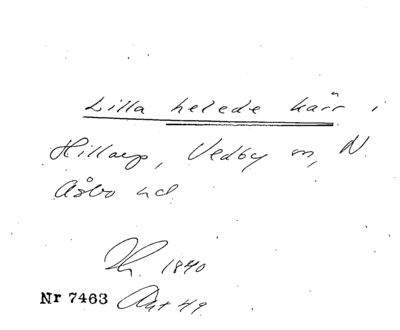 Lilla helede kärr i
Hillarp, Vedby sn, N.
Åsbo hd
1840
Nr 7463 Akt 49